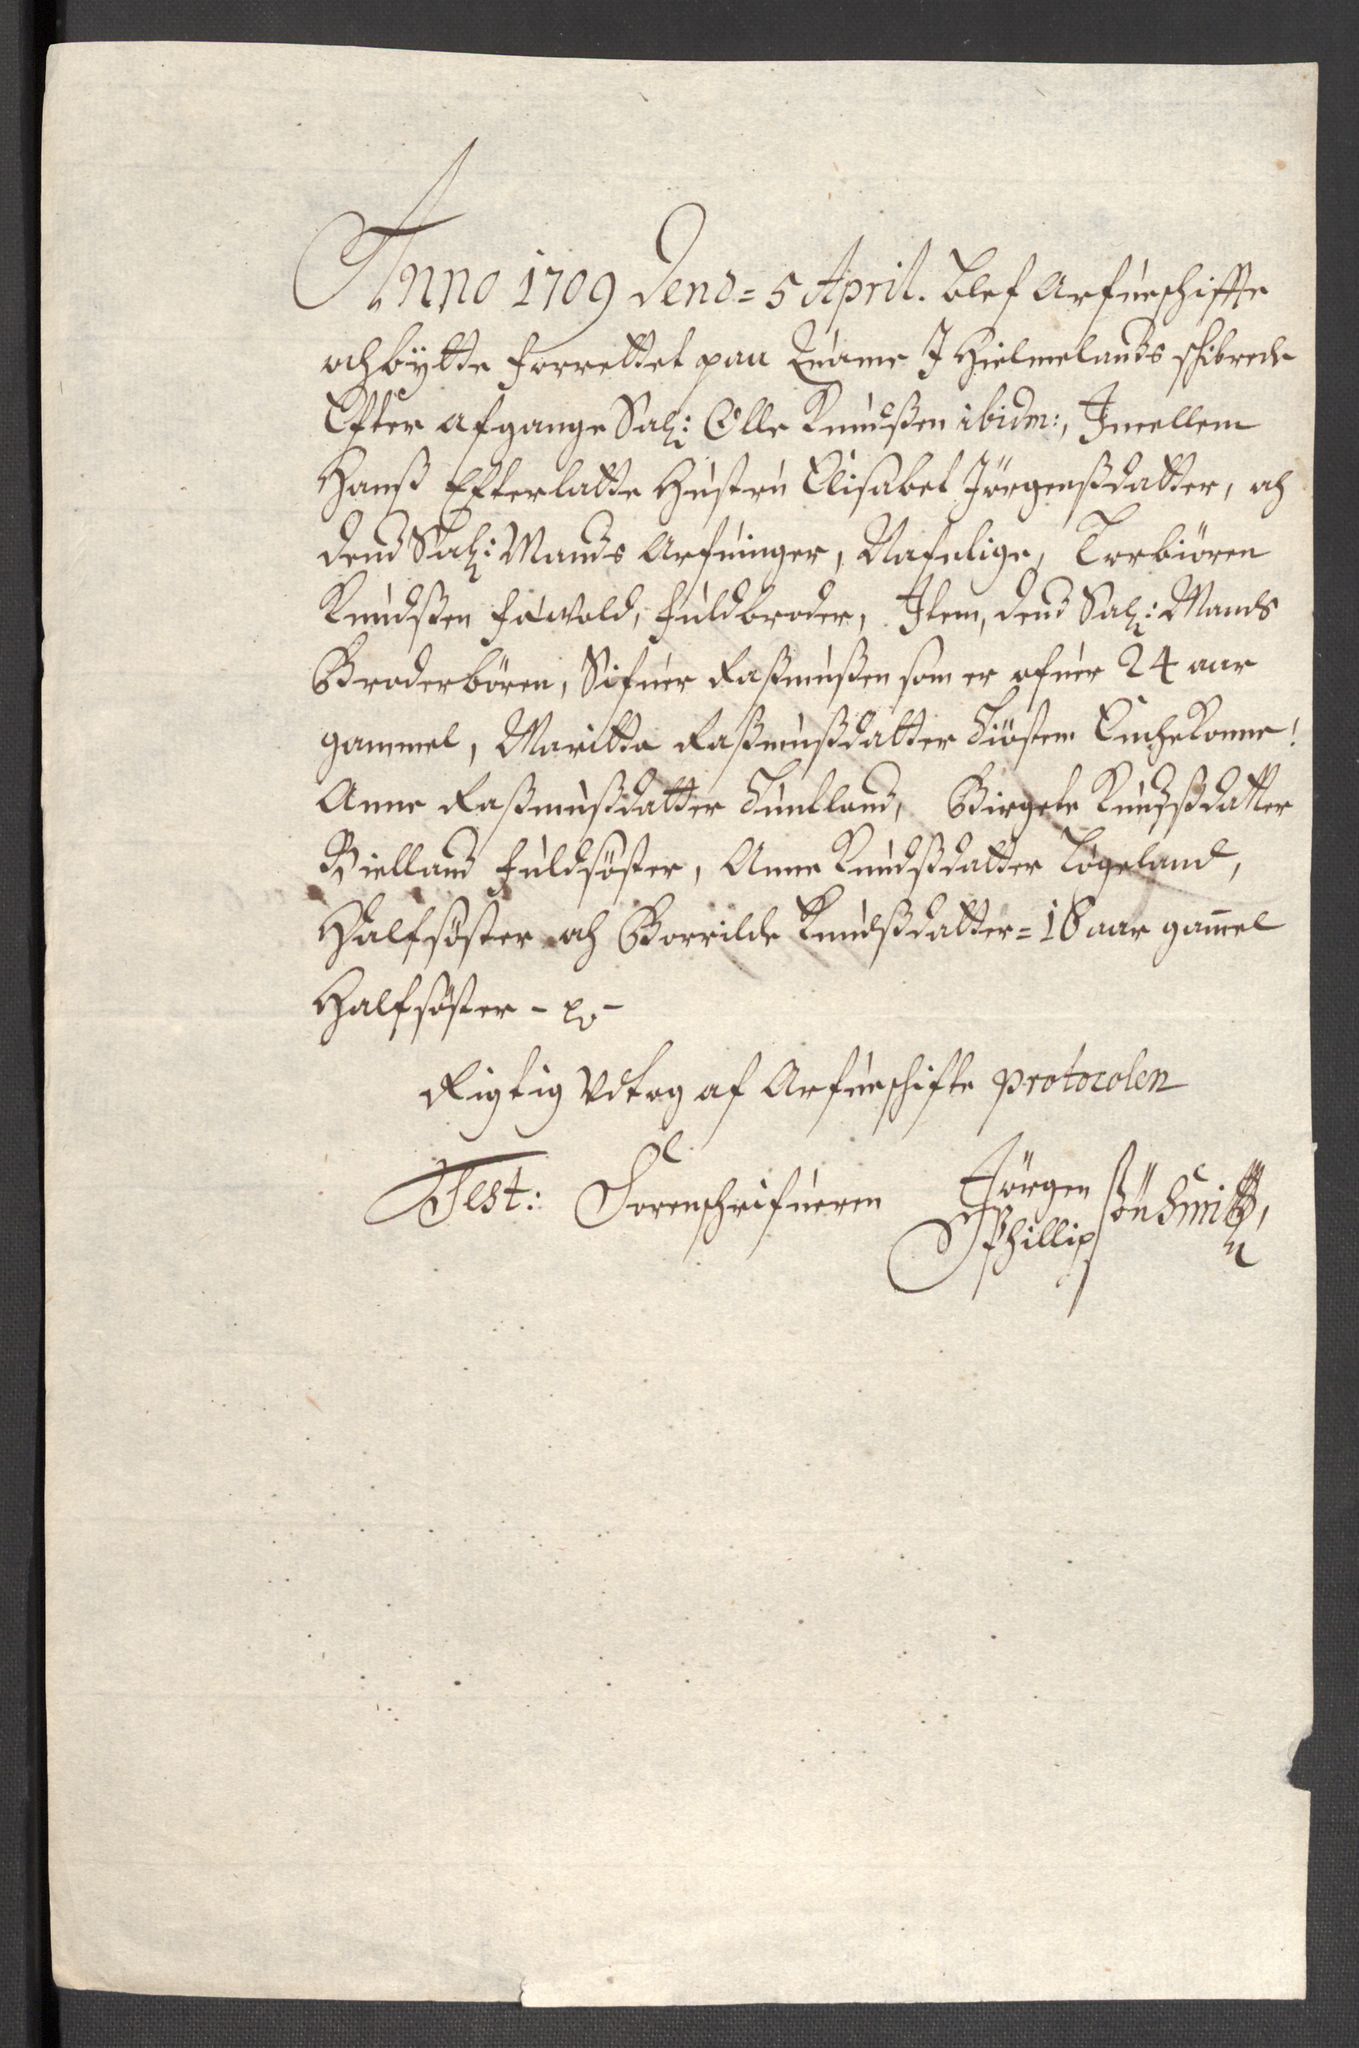 Anno 1709 Dend = 5 April. blef Arfueschiffte
och bytte forrettet paa Quame J Hielmelands schibrede
Efter afgangne Sal: Olle Knudßen ibidm:, Jmellem
Hanß Efterlatte Hustru Elisabet Jörgenßdatter, och
dend Sal: Mands Arfuinger, Nafnlige, Torbiören
Knudßen fuldbroder, Jtem, dend Sal: Mands
Broderbören, Sifuer Raßmußen som er ofuer 24 aar
gammel, Maritta Raßmußdatter Tiöstem Enchekonne!
Anne Raßmußdatter Tuntland, Birgete Knudßdatter
Bielland fuldsöster, Anne KnudßdatterLøgeland,
Halfsöster och Borrilde Knudßdatter = 18 aar gam̄el
Halfsöster -
Rigtig Udtog af Arfueschifte protocolen
Test: Sorenschrifueren Jörgen Phillipsön Smitt,